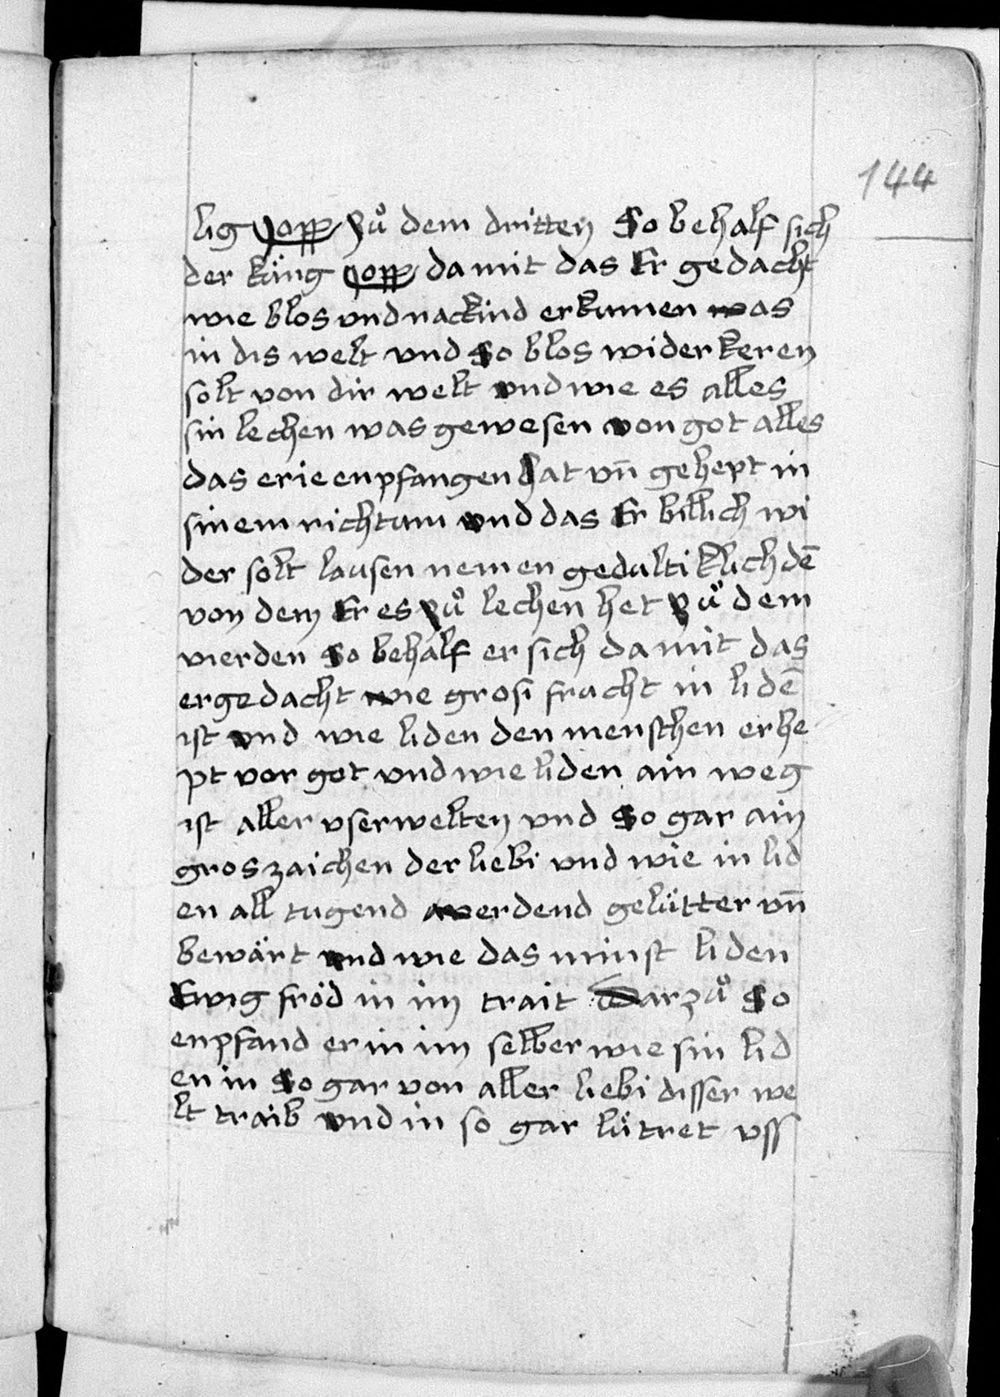 144
lig Jopp zů dem dritten So behalf sich
der küng Jopp da mit das Er gedacht
wie blos vnd nackind er kumen was
in dis welt vnd So blos wider keren
solt von dir welt vnd wie es alles
sin lechen was gewesen von got alles
das er ie enpfangen hat vn̄ gehept in
sinem richtum vnd das Er billich wi
der solt lausen nemen gedultiklich dē
von dem Er es zů lechen het zů dem
vierden So behalf er sich da mit das
er gedacht wie grosi frucht in lidē
ist vnd wie liden den menschen erhe
pt vor got vnd wie liden ain weg
ist aller vserwelten vnd So gar ain
gros zaichen der liebi vnd wie in lid
en all tugend werdend gelütter vn̄
bewärt vnd wie das minst liden
Ewig fröd in im trait Darzů So
enpfand er in im selber wie sin lid
en in So gar von aller liebi disser we
lt traib vnd in so gar lütret vss